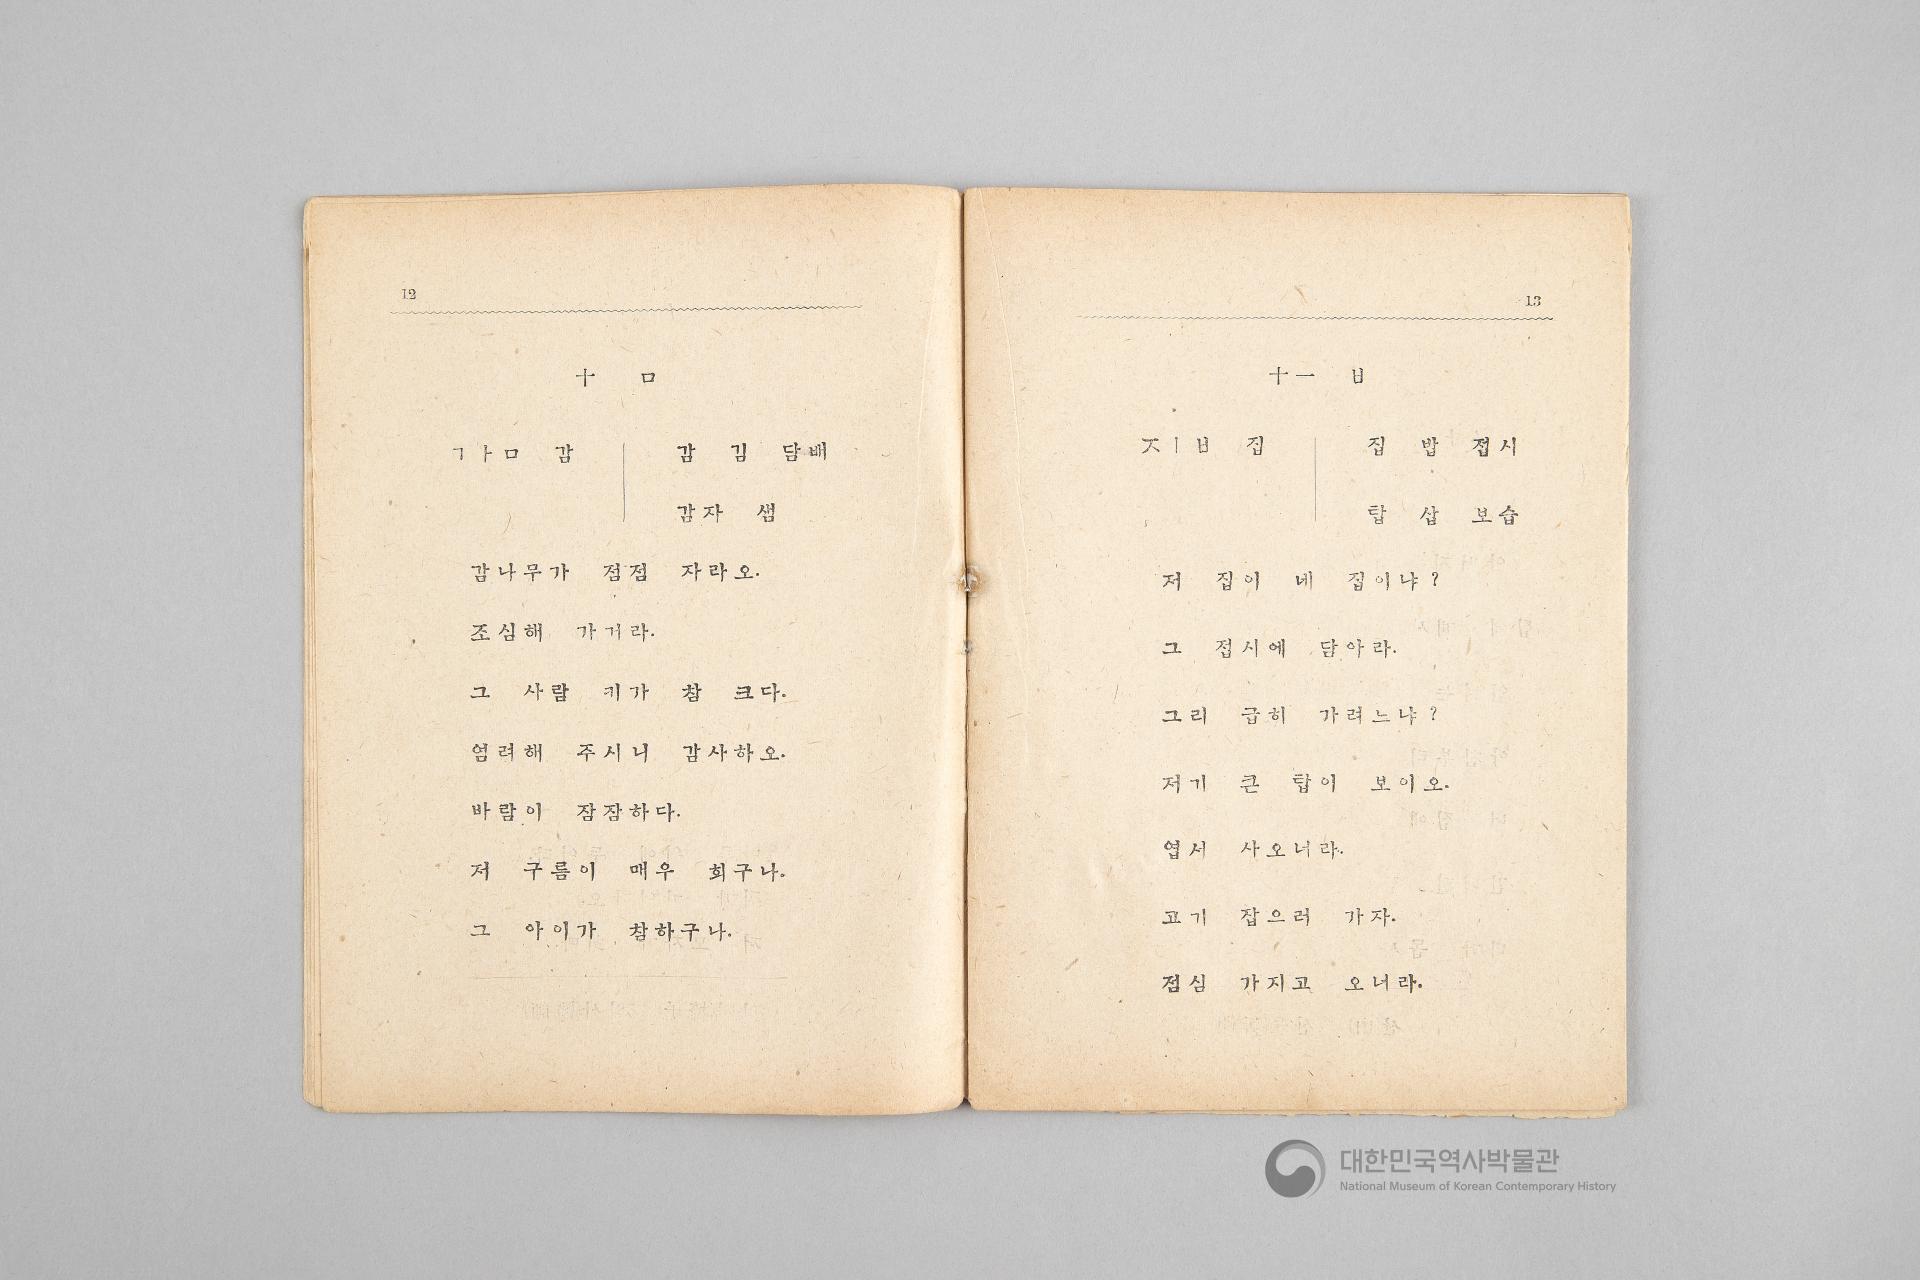 12
十 ㅁ
ㄱㅏㅁ 감 감 김 담배
감자 샘
감나무가 점점 자라오.
조심해 가거라.
그 사람 키가 참 크다.
염려해 주시니 감사하오.
바람이 잠잠하다.
저 구름이 매우 희구나.
그 아이가 참하구나.
13
十一 ㅂ
ㅈㅣㅂ 집 집 밥 접시
탑 삽 보습
저 집이 네 집이냐?
그 접시에 담아라.
그리 급히 가려느냐?
저기 큰 탑이 보이오.
엽서 사오너라.
고기 잡으러 가자.
점심 가지고 오너라.
대한민국역사박물관
National Museum of Korean Contemporary History